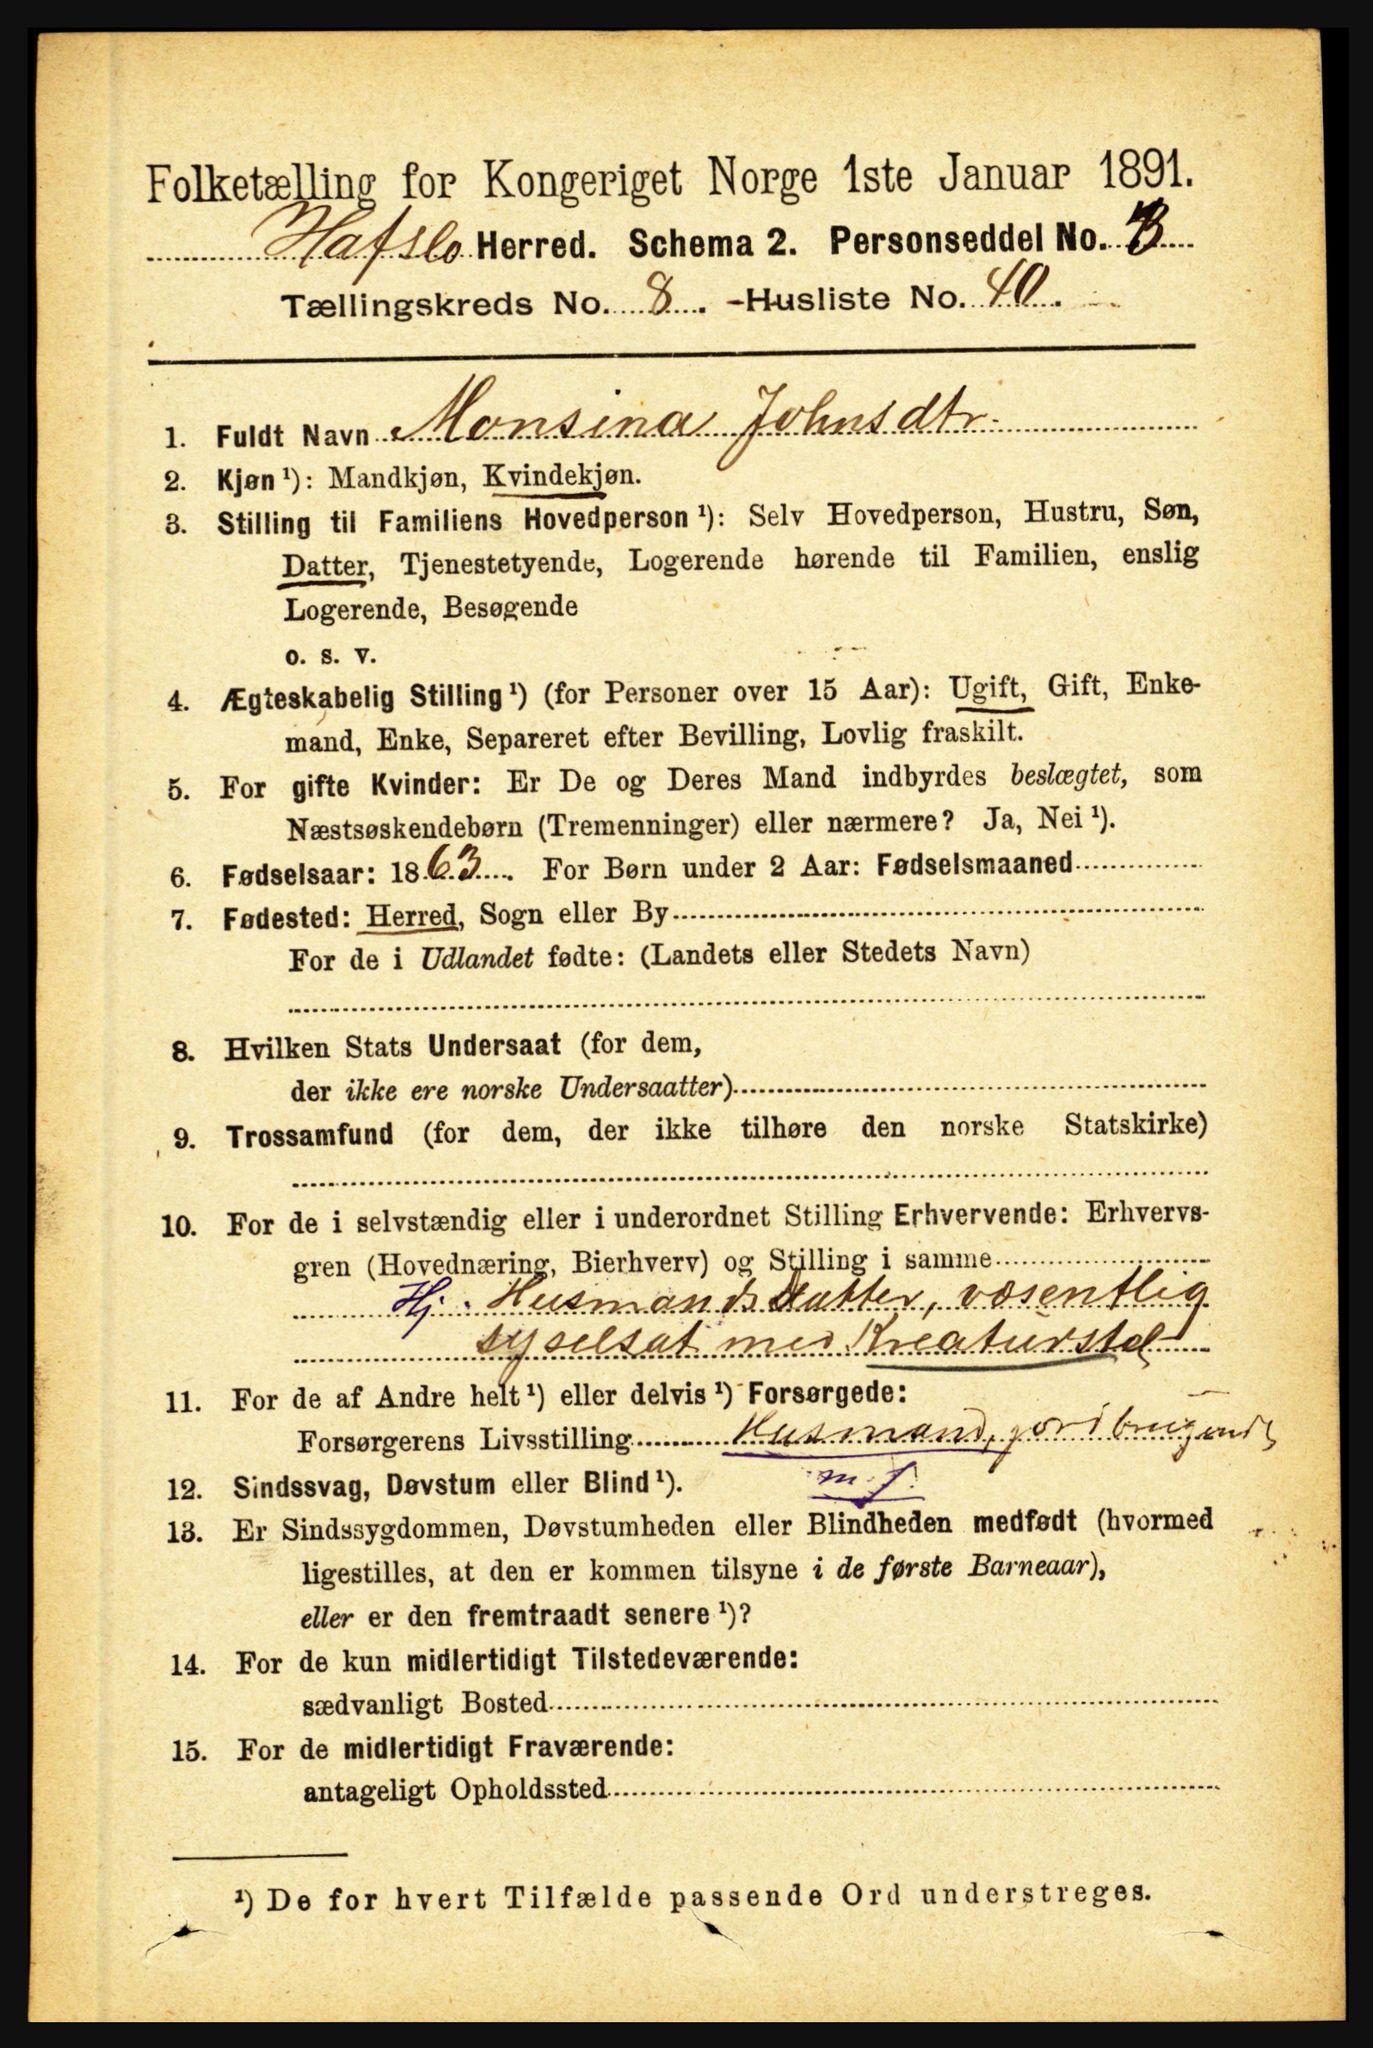 Folketælling for Kongeriget Norge 1ste Januar 1891.
Hafslo Herred. Schema 2. Personseddel No. 3
Tællingskreds No. 8. -Husliste No. 40.
1. Fuldt Navn Monsina Johnsdtr.
2. Kjøn ¹): Mandkjøn, Kvindekjøn.
3. Stilling til Familiens Hovedperson ¹): Selv Hovedperson, Hustru, Søn,
Datter, Tjenestetyende, Logerende hørende til Familien, enslig
Logerende, Besøgende
o. s. v.
4. Ægteskabelig Stilling ¹) (for Personer over 15 Aar): Ugift, Gift, Enke-
mand, Enke, Separeret efter Bevilling, Lovlig fraskilt.
5. For gifte Kvinder: Er De og Deres Mand indbyrdes beslægtet, som
Næstsøskendebørn (Tremenninger) eller nærmere? Ja, Nei ¹).
6. Fødselsaar: 1863. For Børn under 2 Aar: Fødselsmaaned
7. Fødested: Herred, Sogn eller By
For de i Udlandet fødte: (Landets eller Stedets Navn)
8. Hvilken Stats Undersaat (for dem,
der ikke ere norske Undersaatter)
9. Trossamfund (for dem, der ikke tilhøre den norske Statskirke)
10. For de i selvstændig eller i underordnet Stilling Erhvervende: Erhvervs-
gren (Hovednæring, Bierhverv) og Stilling i samme
Hj. Husmandsdatter, væsentlig
syselsat med Kreaturstel
11. For de af Andre helt ¹) eller delvis ¹) Forsørgede:
Forsørgerens Livsstilling Husmand, jordbrugende
m. j.
12. Sindssvag, Døvstum eller Blind ¹).
13. Er Sindssygdommen, Døvstumheden eller Blindheden medfødt (hvormed
ligestilles, at den er kommen tilsyne i de første Barneaar),
eller er den fremtraadt senere ¹)?
14. For de kun midlertidigt Tilstedeværende:
sædvanligt Bosted
15. For de midlertidigt Fraværende:
antageligt Opholdssted
¹) De for hvert Tilfælde passende Ord understreges.